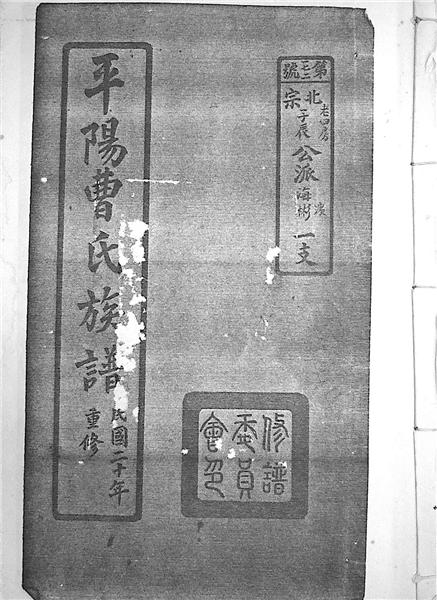 第七二號
北宗
老四房
子良公派
海彬
一支
平陽曹氏族譜
民國二十年
重修
修譜
委員
會印